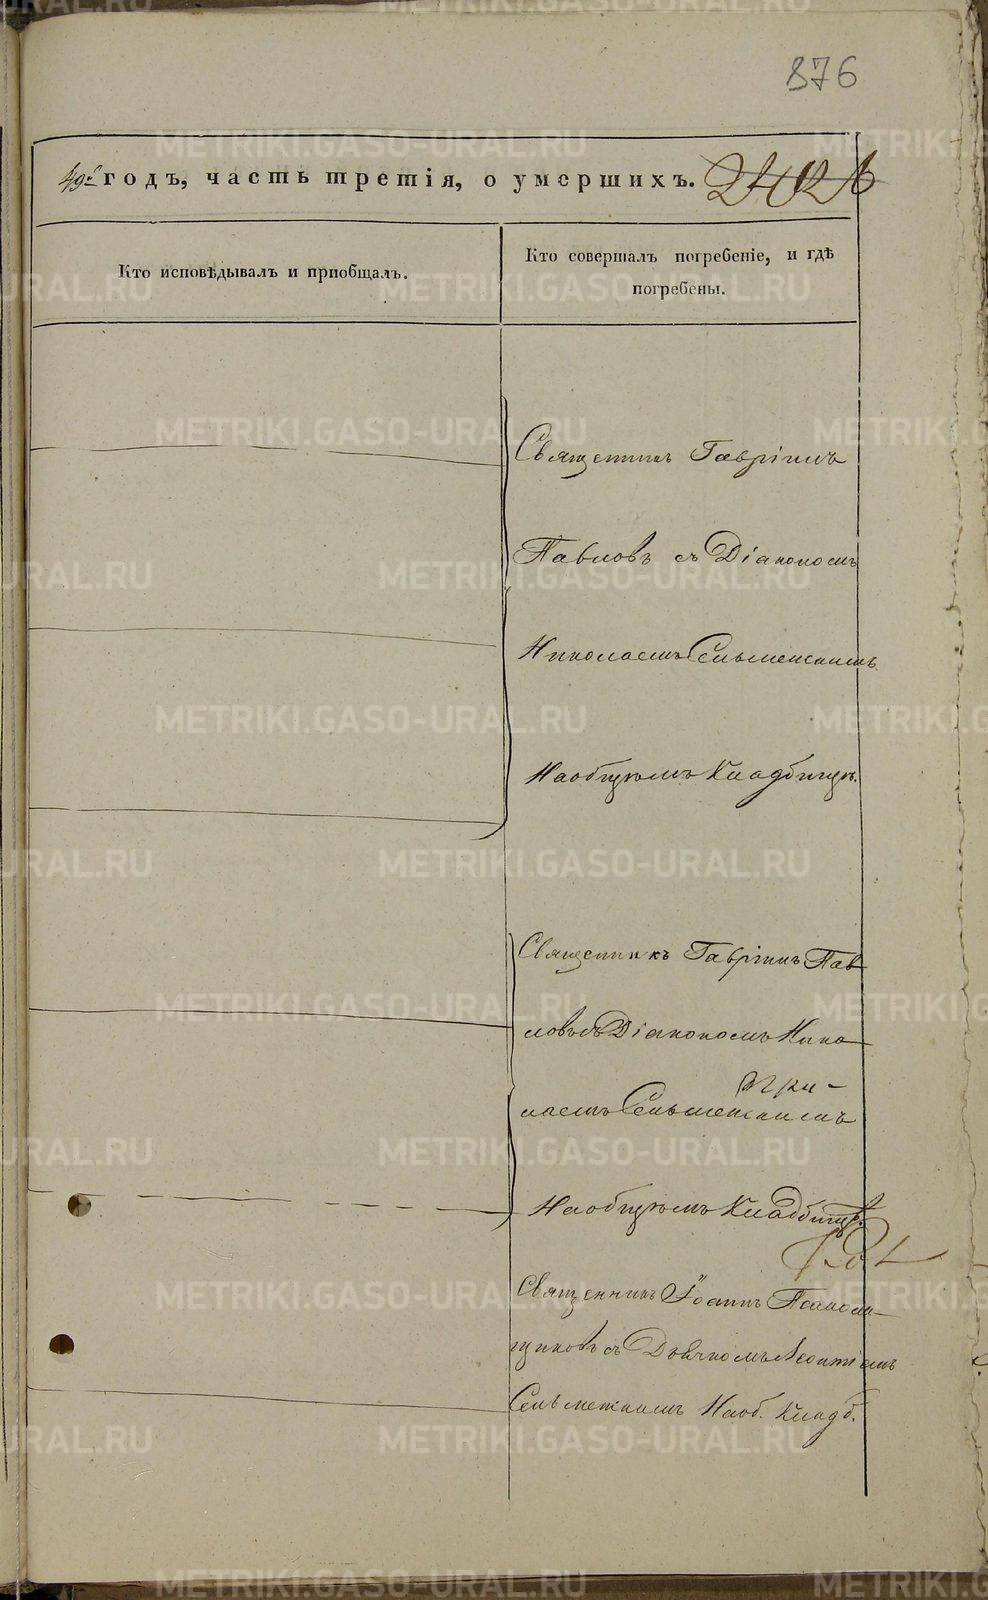 876
49й годъ, часть третія, о умершихъ.
Кто исповѣдывалъ и пріобщалъ.
Кто совершалъ погребеніе, и гдѣ
погребены.
Священникъ Гавріилъ
Павловъ съ Діакономъ
Николаемъ
На общемъ Кладбищѣ.
Священникъ Гавріилъ Пав
ловъ съ Діакономъ Нико
лаемъ
На общемъ Кладбищѣ.
Священникъ Іоаннъ
съ Дьячкомъ Леонтіемъ
На об. Кладб.
METRIKI.GASO-URAL.RU